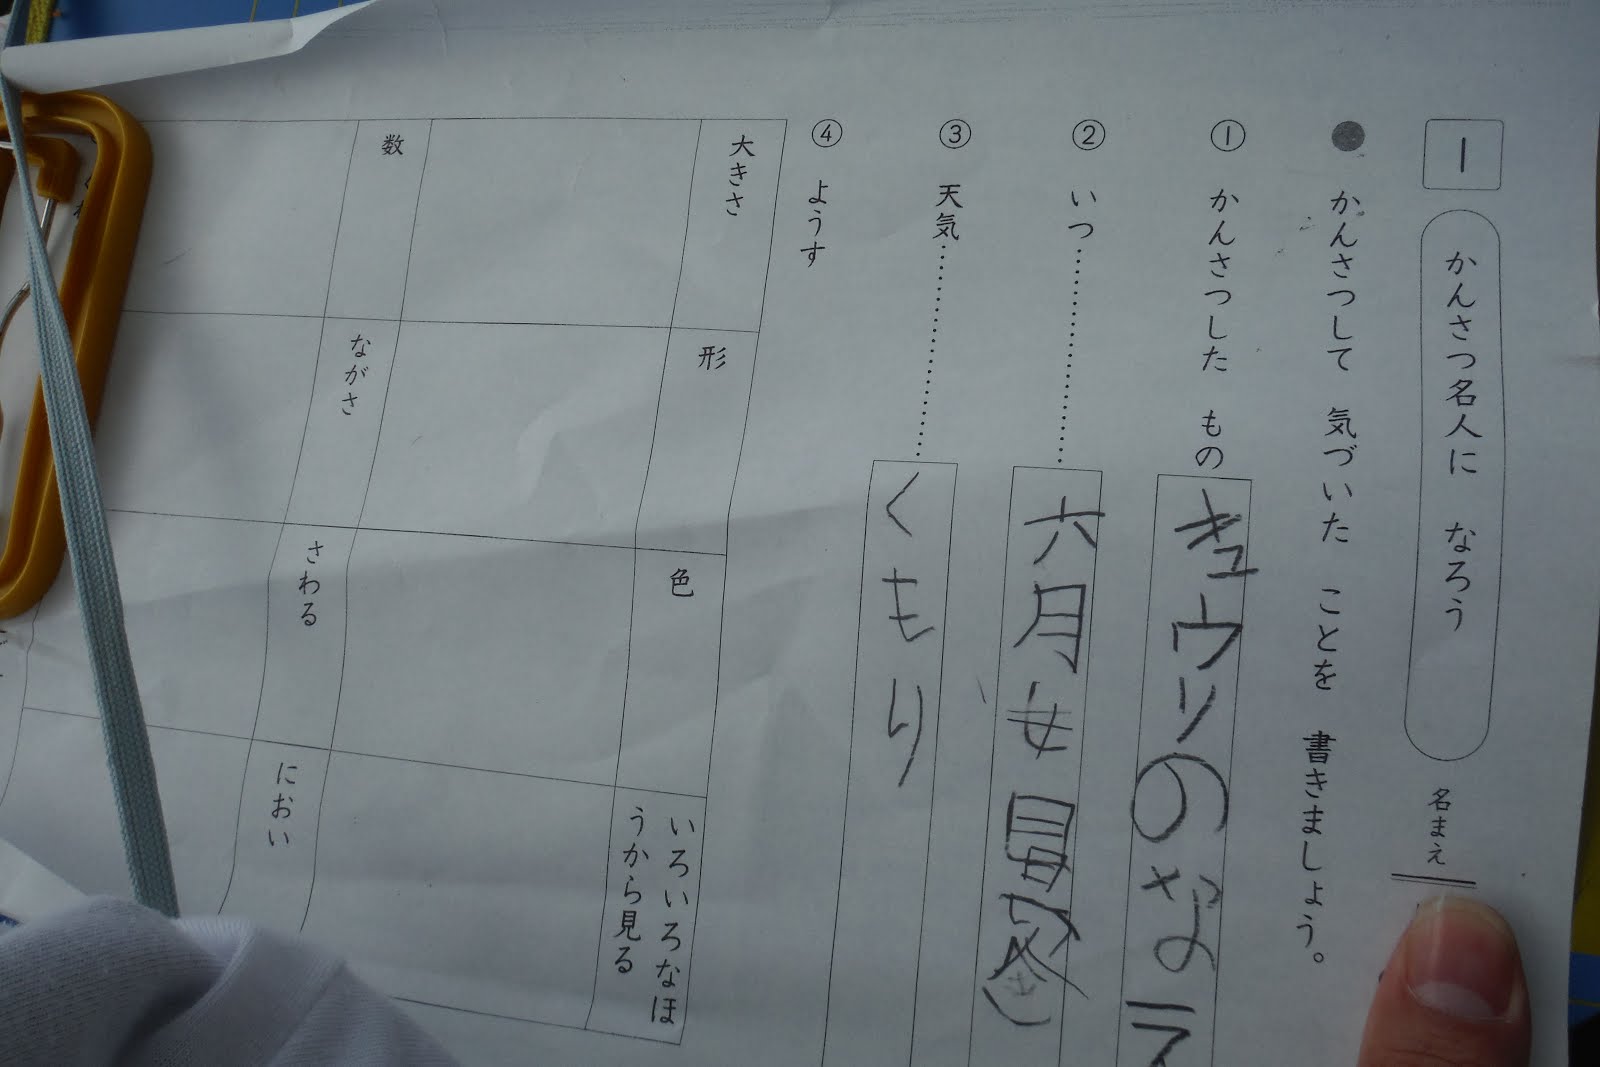 1
かんさつ名人に なろう
名まえ
● かんさつして 気づいた ことを 書きましょう。
① かんさつした もの キュウリのなえ
② いつ………… 六月
③ 天気………… くもり
④ ようす
大きさ
形
色
いろいろなほ
うから見る
数
ながさ
さわる
におい